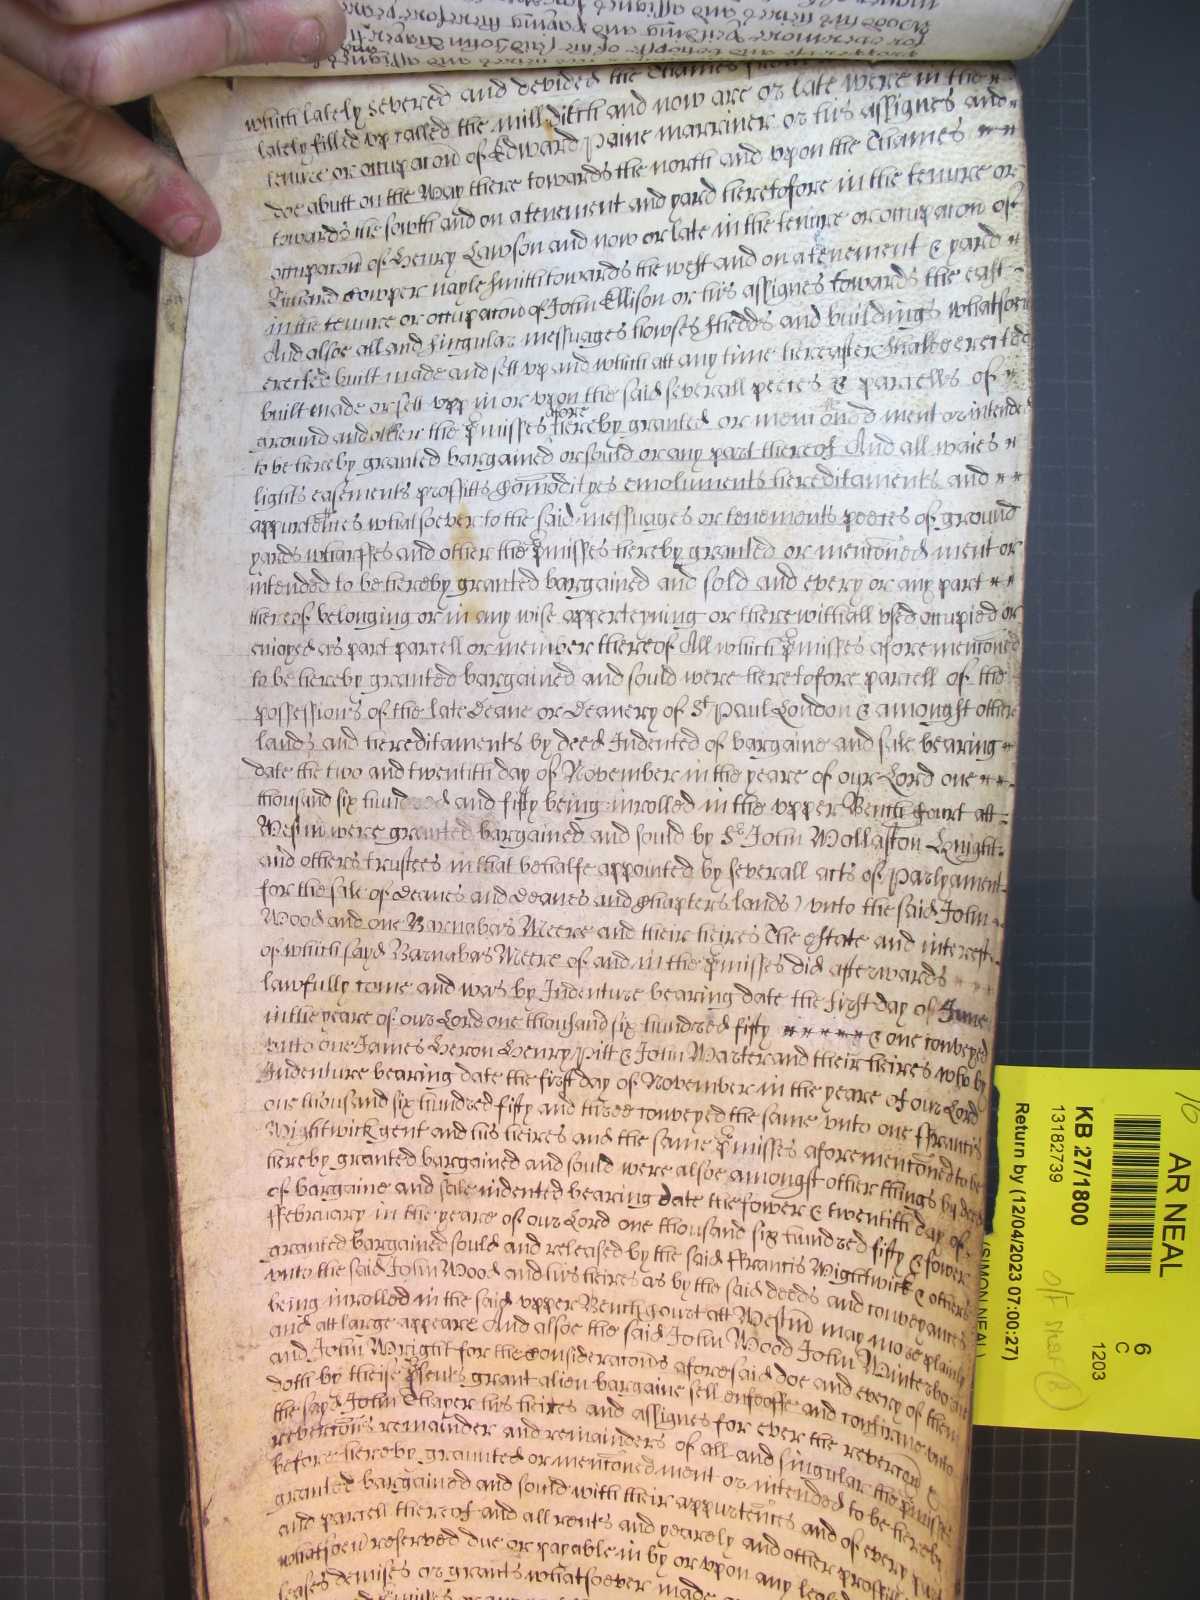 which lately severed and devided the Thames from
lately filled vp called the mill Ditch and now are or late were in the
tenure or occupacoñ of Edward Paine marriner or his assignes and
doe abutt on the Way there towards the north and vpon the Thames
towards the sowth and on a tenement and yard heretofore in the tenure or
occupacoñ of Henry Lawson and now or late in the tenure or occupacoñ of
Richard Cowper naylesmith towards the west and on a tenement & yard
in the tenure or occupacoñ of John Ellison or his assignes towards the east
And alsoe all and singular messuages howses shedds and buildings whatsoeu
erected built made and sett vp and which att any time hereafter shalbe erected
built made or sett vpp in or vpon the said severall peeces & parcells of
ground and other the pmisses afore hereby granted or mencõned ment or intended
to be hereby granted bargained or sould or any part thereof And all waies
lights easements proffitts Comodityes emoluments hereditaments and
appurteñces whatsoever to the said messuages or tenements peeces of ground
yards wharffes and other the pmisses hereby granted or mencõned ment or
intended to be hereby granted bargained and sold and every or any part
thereof belonging or in any wise apperteyning or therewithall vsed occupied or
enioyed as part parcell or member thereof All which pmisses aforemencõned
to be hereby granted bargained and sould were heretofore parcell of the
possessions of the late Deane or Deanery of St Paul London & amongst other
lands and hereditaments by deed Indented of bargaine and sale bearing
date the two and twentith day of November in the yeare of our Lord one
thousand six hundred and fifty being inrolled in the vpper Bench Court att
Westm were granted bargained and sould by Sr John Wollaston Knight
and others trustees in that behalfe appointed by severall acts of Parlyament
for the sale of Deanes and Deanes and Chapters lands) vnto the said John
Wood and one Barnabas Meere and their heires The estate and interest
of which sayd Barnabas Meere of and in the pmisses did afterwards
lawfully come and was by Indenture bearing date the first day of June
in the yeare of our Lord one thousand six hundred fifty & one conveyed
vnto one James Heron Henry Pitt & John Marter and their heires who by
Indenture bearing date the first day of November in the yeare of our Lord
one thousand six hundred fifty and three conveyed the same vnto one ffrancis
Wightwick gent and his heires and the same pmisses aforementõned to be
hereby granted bargained and sould were alsoe amongst other things by deed
of bargaine and sale indented bearing date the fower & twentith day of
ffebruary in the yeare of our Lord one thousand six hundred fifty & fower
granted bargained sould and released by the said ffrancis Wightwick & others
vnto the said John Wood and his heires as by the said deeds and conveyances
being inrolled in the said vpper Bench Court att Westm may more plainly
and att large appeare And alsoe the said John Wood John Winterborne
and John Wright for the consideracoñs aforesaid doe and every of them
doth by theise psents grant alien bargaine sell enfeoffe and confirme vnto
the sayd John Thayer his heires and assignes for ever the revercoñ &
revercoñs remainder and remainders of all and singular the pmisses
before hereby graunted or mencõned ment or intended to be hereby
granted bargained and sould with their appurteñces and of every part
and parcell thereof and all rents and yearely and other proffitts
whatsoeu reserved due or payable in by or vpon any
leases demises or grants whatsoever made
AR NEAL
6
C
1203
KB 27/1800
13182739
(SIMON NEAL)
Return by (12/04/2023 07:00:27)
10